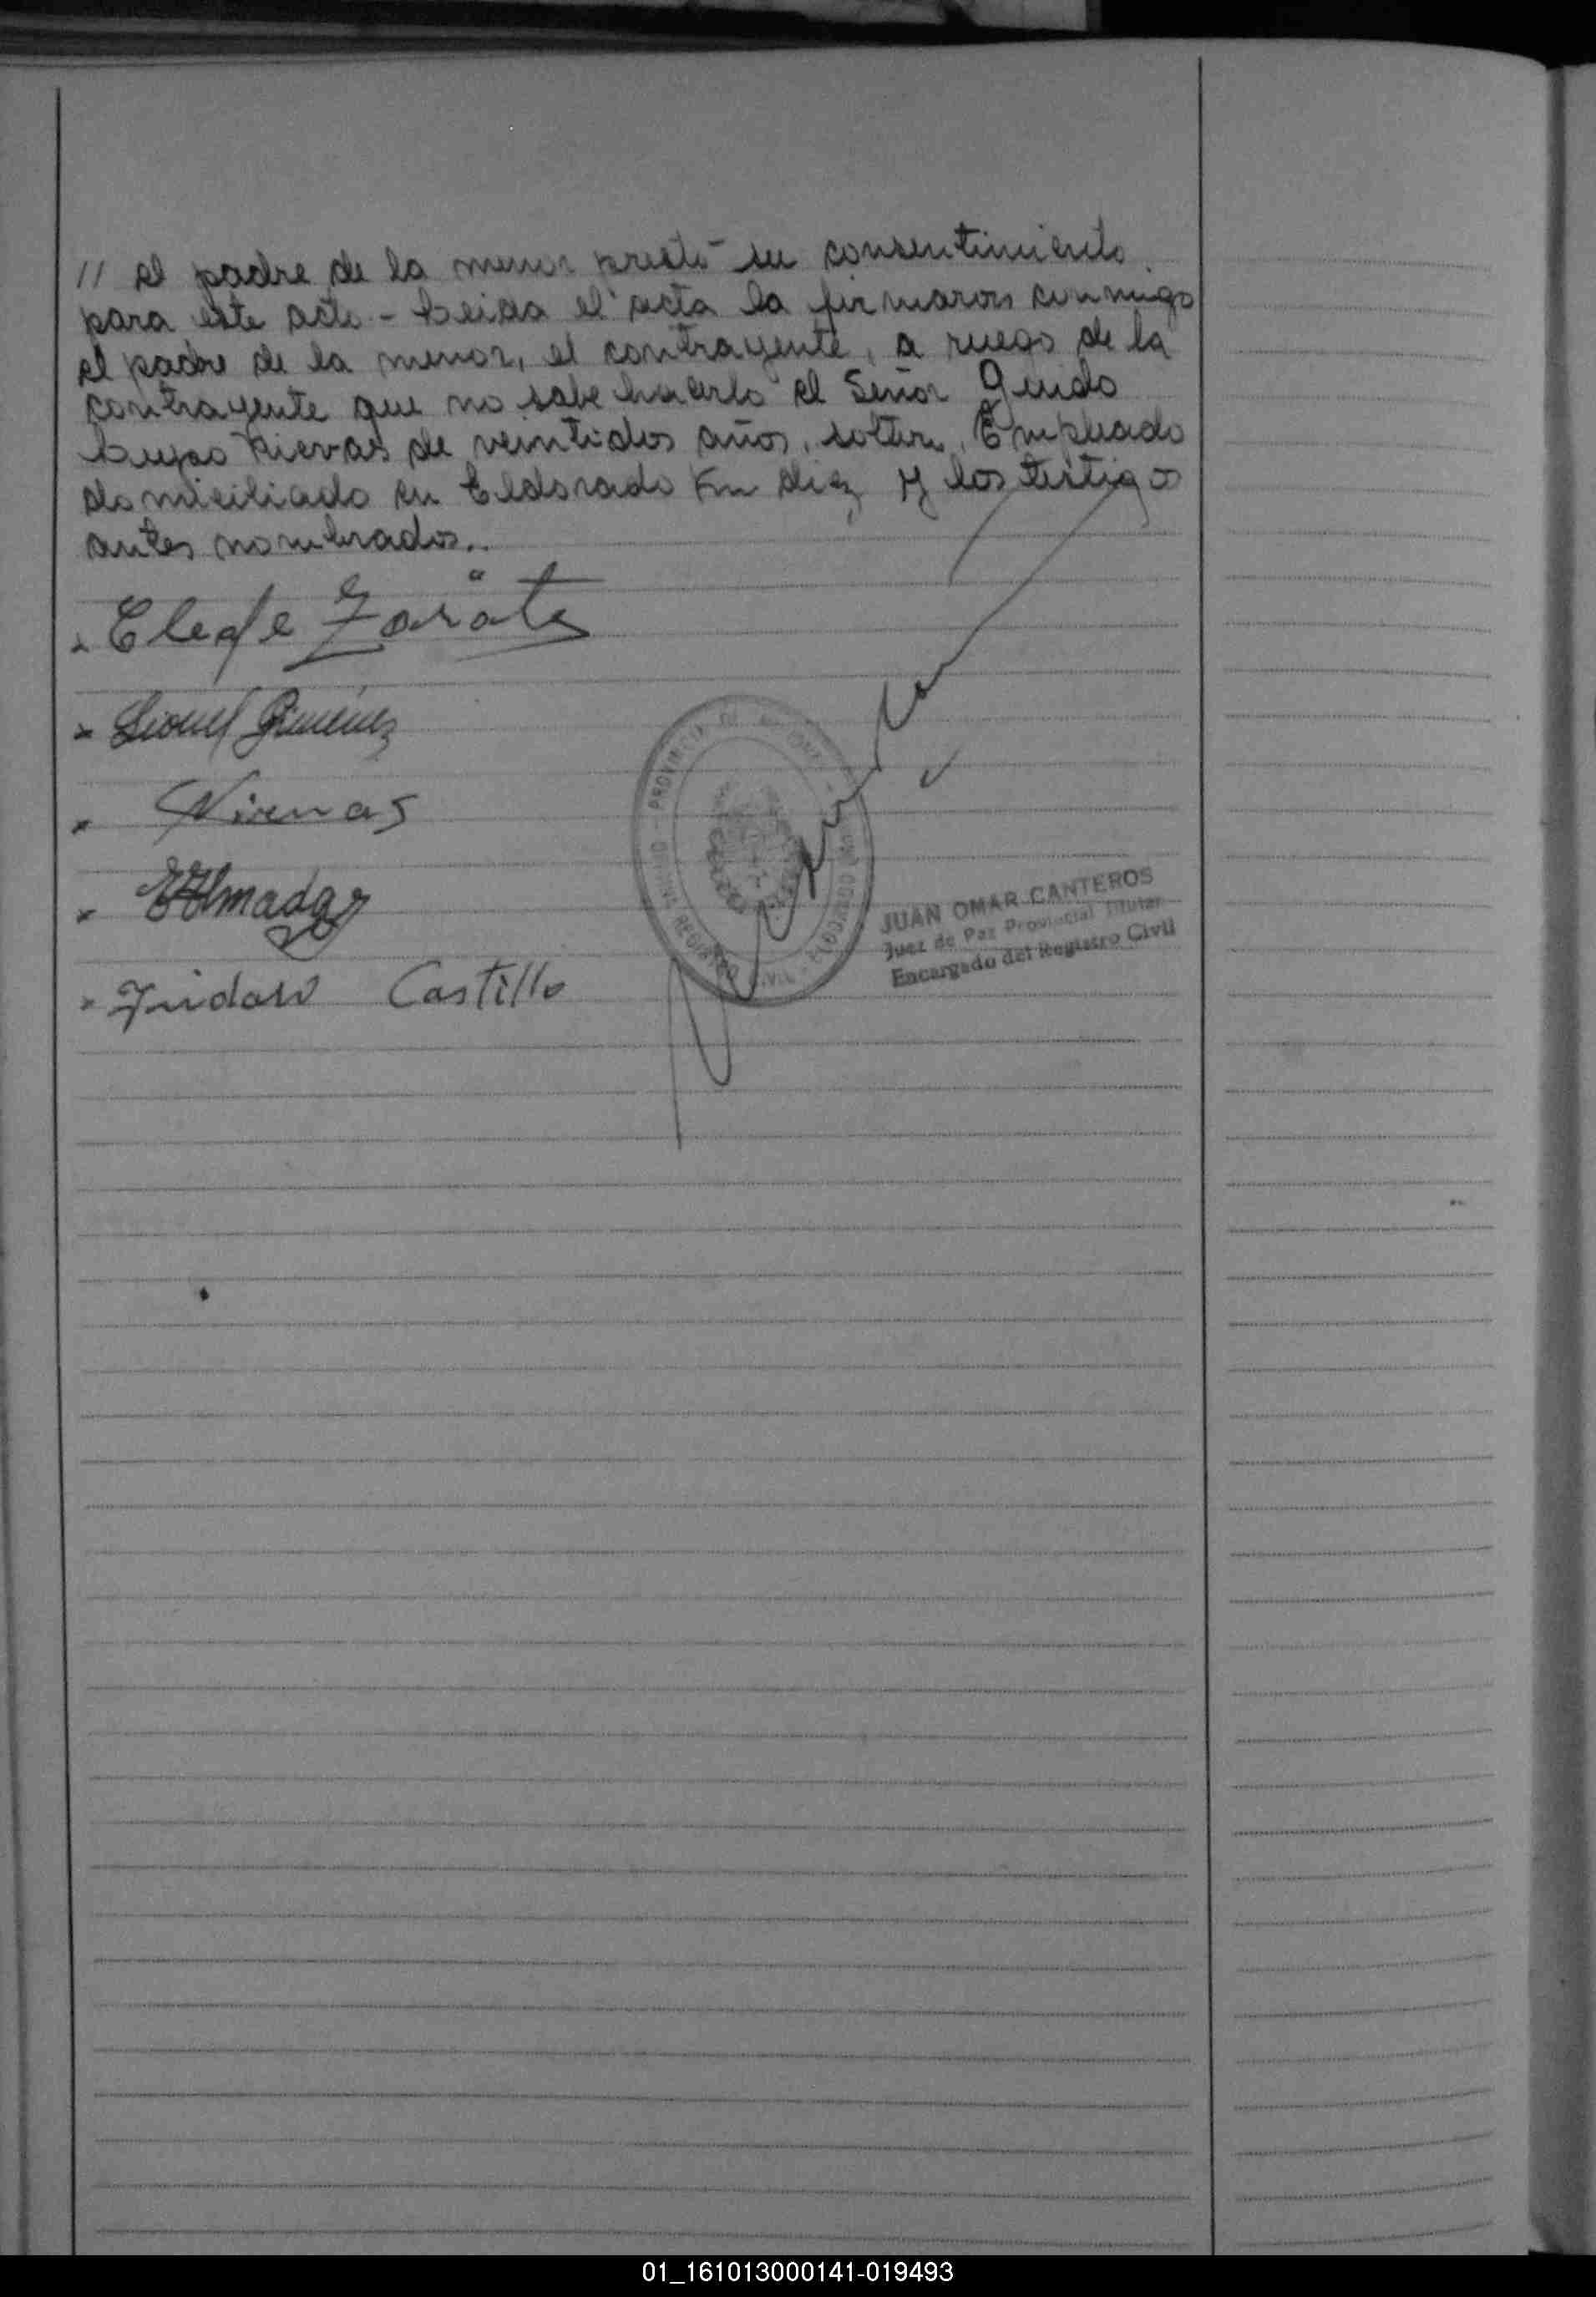 // el padre de la menor prestó su consentimiento
para este acto - Leida el acta la firmaron conmigo
el padre de la menor, el contrayente, a ruego de la
contrayente que no sabe hacerlo el Señor Guido
Lujan Nievas de veintidos años, soltero, Empleado
domiciliado en Eldorado Km diez y los testigos
antes nombrados..
Zarate
Lionel Gimenez
Nievas
Almada
Castillo
PROVINCIA DE MISIONES
REGISTRO CIVIL
JUAN OMAR CANTEROS
Juez de Paz Provincial Titular
Encargado del Registro Civil
01_161013000141-019493